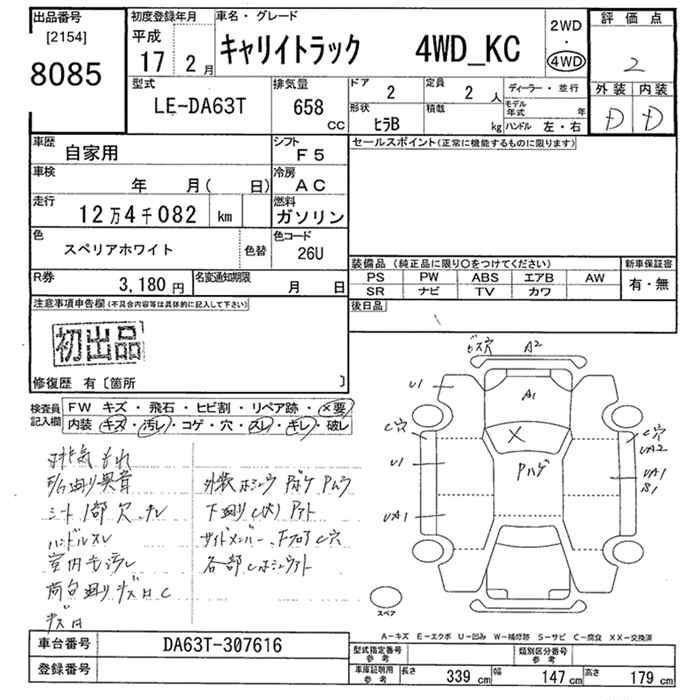 出品番号 初度登録年月 車名・グレード 2WD 評価点
[2154] 平成
8085 17年 2月 キャリイトラック 4WD_KC ・ 4WD 2
型式 排気量 ドア 定員 ディーラー・並行 外装 内装
LE-DA63T 658 CC 2 2人 モデル年式 年 D D
形状 積載
ヒラB kg ハンドル 左・右
車歴 自家用 シフト F5 セールスポイント(正常に機能するものに限ります)
車検 年 月( 日) 冷房 AC
走行 12万4千082 km 燃料 ガソリン
色 スペリアホワイト 色替 色コード 26U
装備品 (純正品に限り○をつけてください) 新車保証書
PS PW ABS エアB AW 有・無
SR ナビ TV カワ
R券 3,180円 名変通知期限 月 日
後日品
注意事項申告欄(不具合内容等は具体的に記入して下さい)
初出品
修復歴 有〔箇所 〕
検査員記入欄 FW キズ・飛石・ヒビ割・リペア跡・×要
内装 キズ・汚レ・コゲ・穴・スレ・キレ・破レ
排気もれ
シート1部欠、キレ
ハンドルスレ
室内も汚レ
各部
A2
U1 A1
C穴 X C穴
UA2
U1 Pハゲ UA1
S1
UA1
スペア
A-キズ E-エクボ U-凹み W-補修跡 S-サビ C-腐食 XX-交換済
車台番号 DA63T-307616
登録番号
型式指定番号 参考 類別区分番号 参考
車庫証明用 参考 長さ 339 cm 幅 147 cm 高さ 179 cm